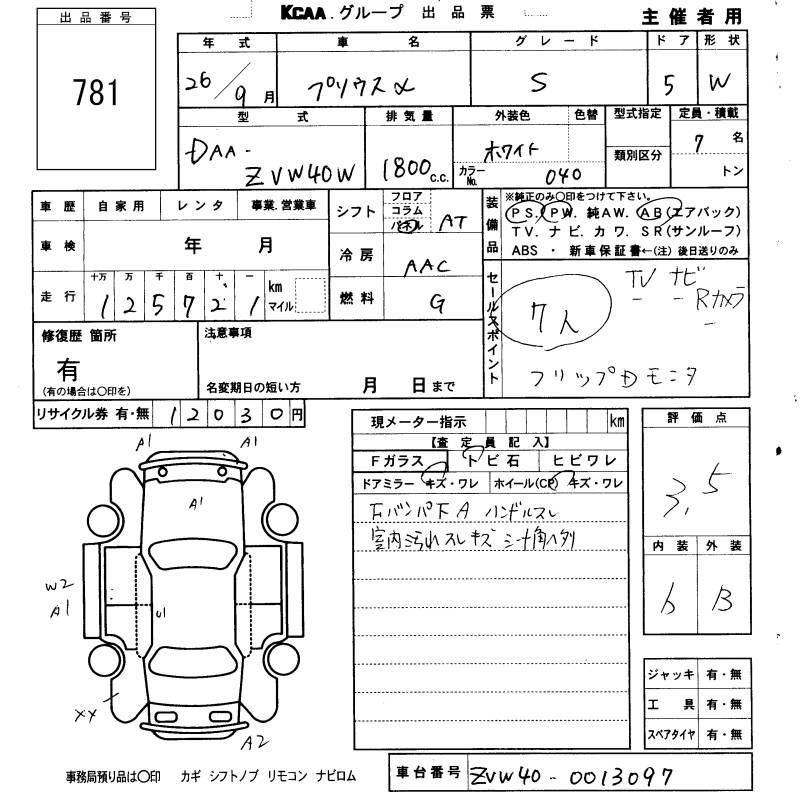 出品番号
781
KCAA.グループ 出品票
主催者用
年式 車名 グレード ドア 形状
26/9月 プリウスα S 5 W
型式 排気量 外装色 色替 型式指定 定員・積載
DAA-
ZVW40W
1800c.c.
ホワイト
カラーNo. 040
類別区分
7名
トン
車歴 自家用 レンタ 事業.営業車
車検 年 月
走行 十万 万 千 百 十 一
125721 km
マイル
シフト フロア
コラム
パネル
AT
冷房 AAC
燃料 G
装備品
※純正のみ○印をつけて下さい。
PS. PW. 純AW. AB(エアバック)
TV. ナビ. カワ. SR(サンルーフ)
ABS ・ 新車保証書←(注)後日送りのみ
セールスポイント
TV ナビ
Rカメラ
7人
フリップDモニタ
修復歴 箇所
有
(有の場合は○印を)
注意事項
名変期日の短い方 月 日まで
リサイクル券 有・無 12030円
現メーター指示 km
【査定員記入】
Fガラス トビ石 ヒビワレ
ドアミラー キズ・ワレ ホイール(CP) キズ・ワレ
Fバンパ下A ハンドルスレ
室内汚れスレキズ シート角ヘタリ
評価点
3.5
内装 外装
b B
ジャッキ 有・無
工具 有・無
スペアタイヤ 有・無
A1 A1
A1
W2
A1
U1
XX
A2
事務局預り品は○印 カギ シフトノブ リモコン ナビロム
車台番号 ZVW40-0013097